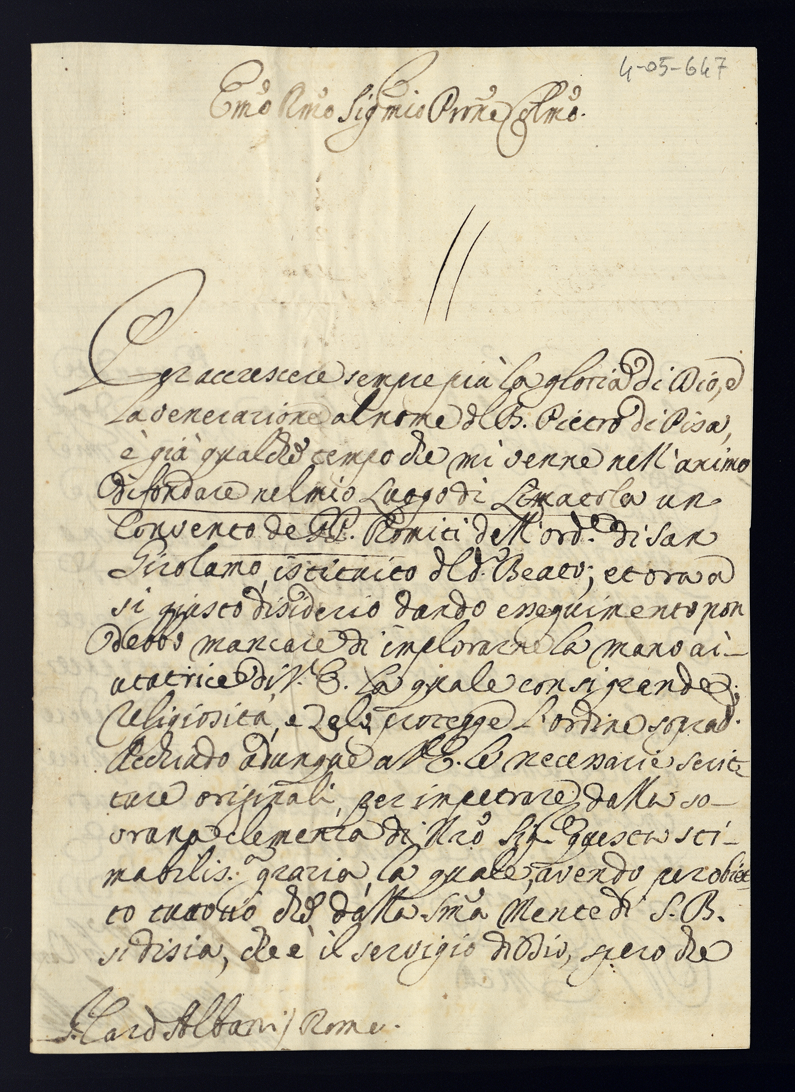 4-05-647
Emo Rmo Sig mio Prone Colmo.
Per accrescere sempre più la gloria di Dio, e
la venerazione al nome del B. Pietro di Pisa,
è già qualche tempo che mi venne nell'animo
di fondare nel mio Luogo di Limatola un
Convento de PP. Romiti dell'ord.e di San
Girolamo, istituito dal d.o Beato; et ora a
sì giusto disiderio dando esseguimento non
debbo mancare di implorarne la mano ai-
utatrice di V. E. la quale con sì grande
religiosità, e zelo protegge l'ordine soprad.o
Acchiudo adunque a V. E. le necessarie scrit-
ture originali, per impetrare dalla so-
vrana clemenza di Nro Sig.e questa sti-
mabilis.a grazia, la quale, avendo per obiet-
to tutto ciò che dalla Sma Mente di S. B.
si disia, che è il servigio di Dio, spero che
S. Card Albani / Roma.